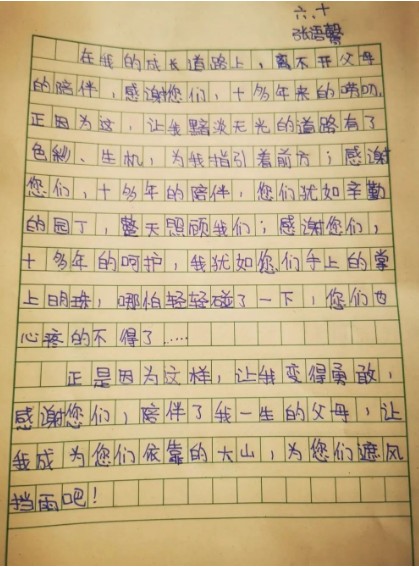 六、十
张语馨
在我的成长道路上，离不开父母
的陪伴，感谢您们，十多年来的唠叨，
正因为这，让我黯淡无光的道路有了
色彩、生机，为我指引着前方；感谢
您们，十多年的陪伴，您们犹如辛勤
的园丁，整天照顾我们；感谢您们，
十多年的呵护，我犹如您们手上的掌
上明珠，哪怕轻轻碰了一下，您们也
心疼的不得了……
正是因为这样，让我变得勇敢，
感谢您们，陪伴了我一生的父母，让
我成为您们依靠的大山，为您们遮风
挡雨吧！